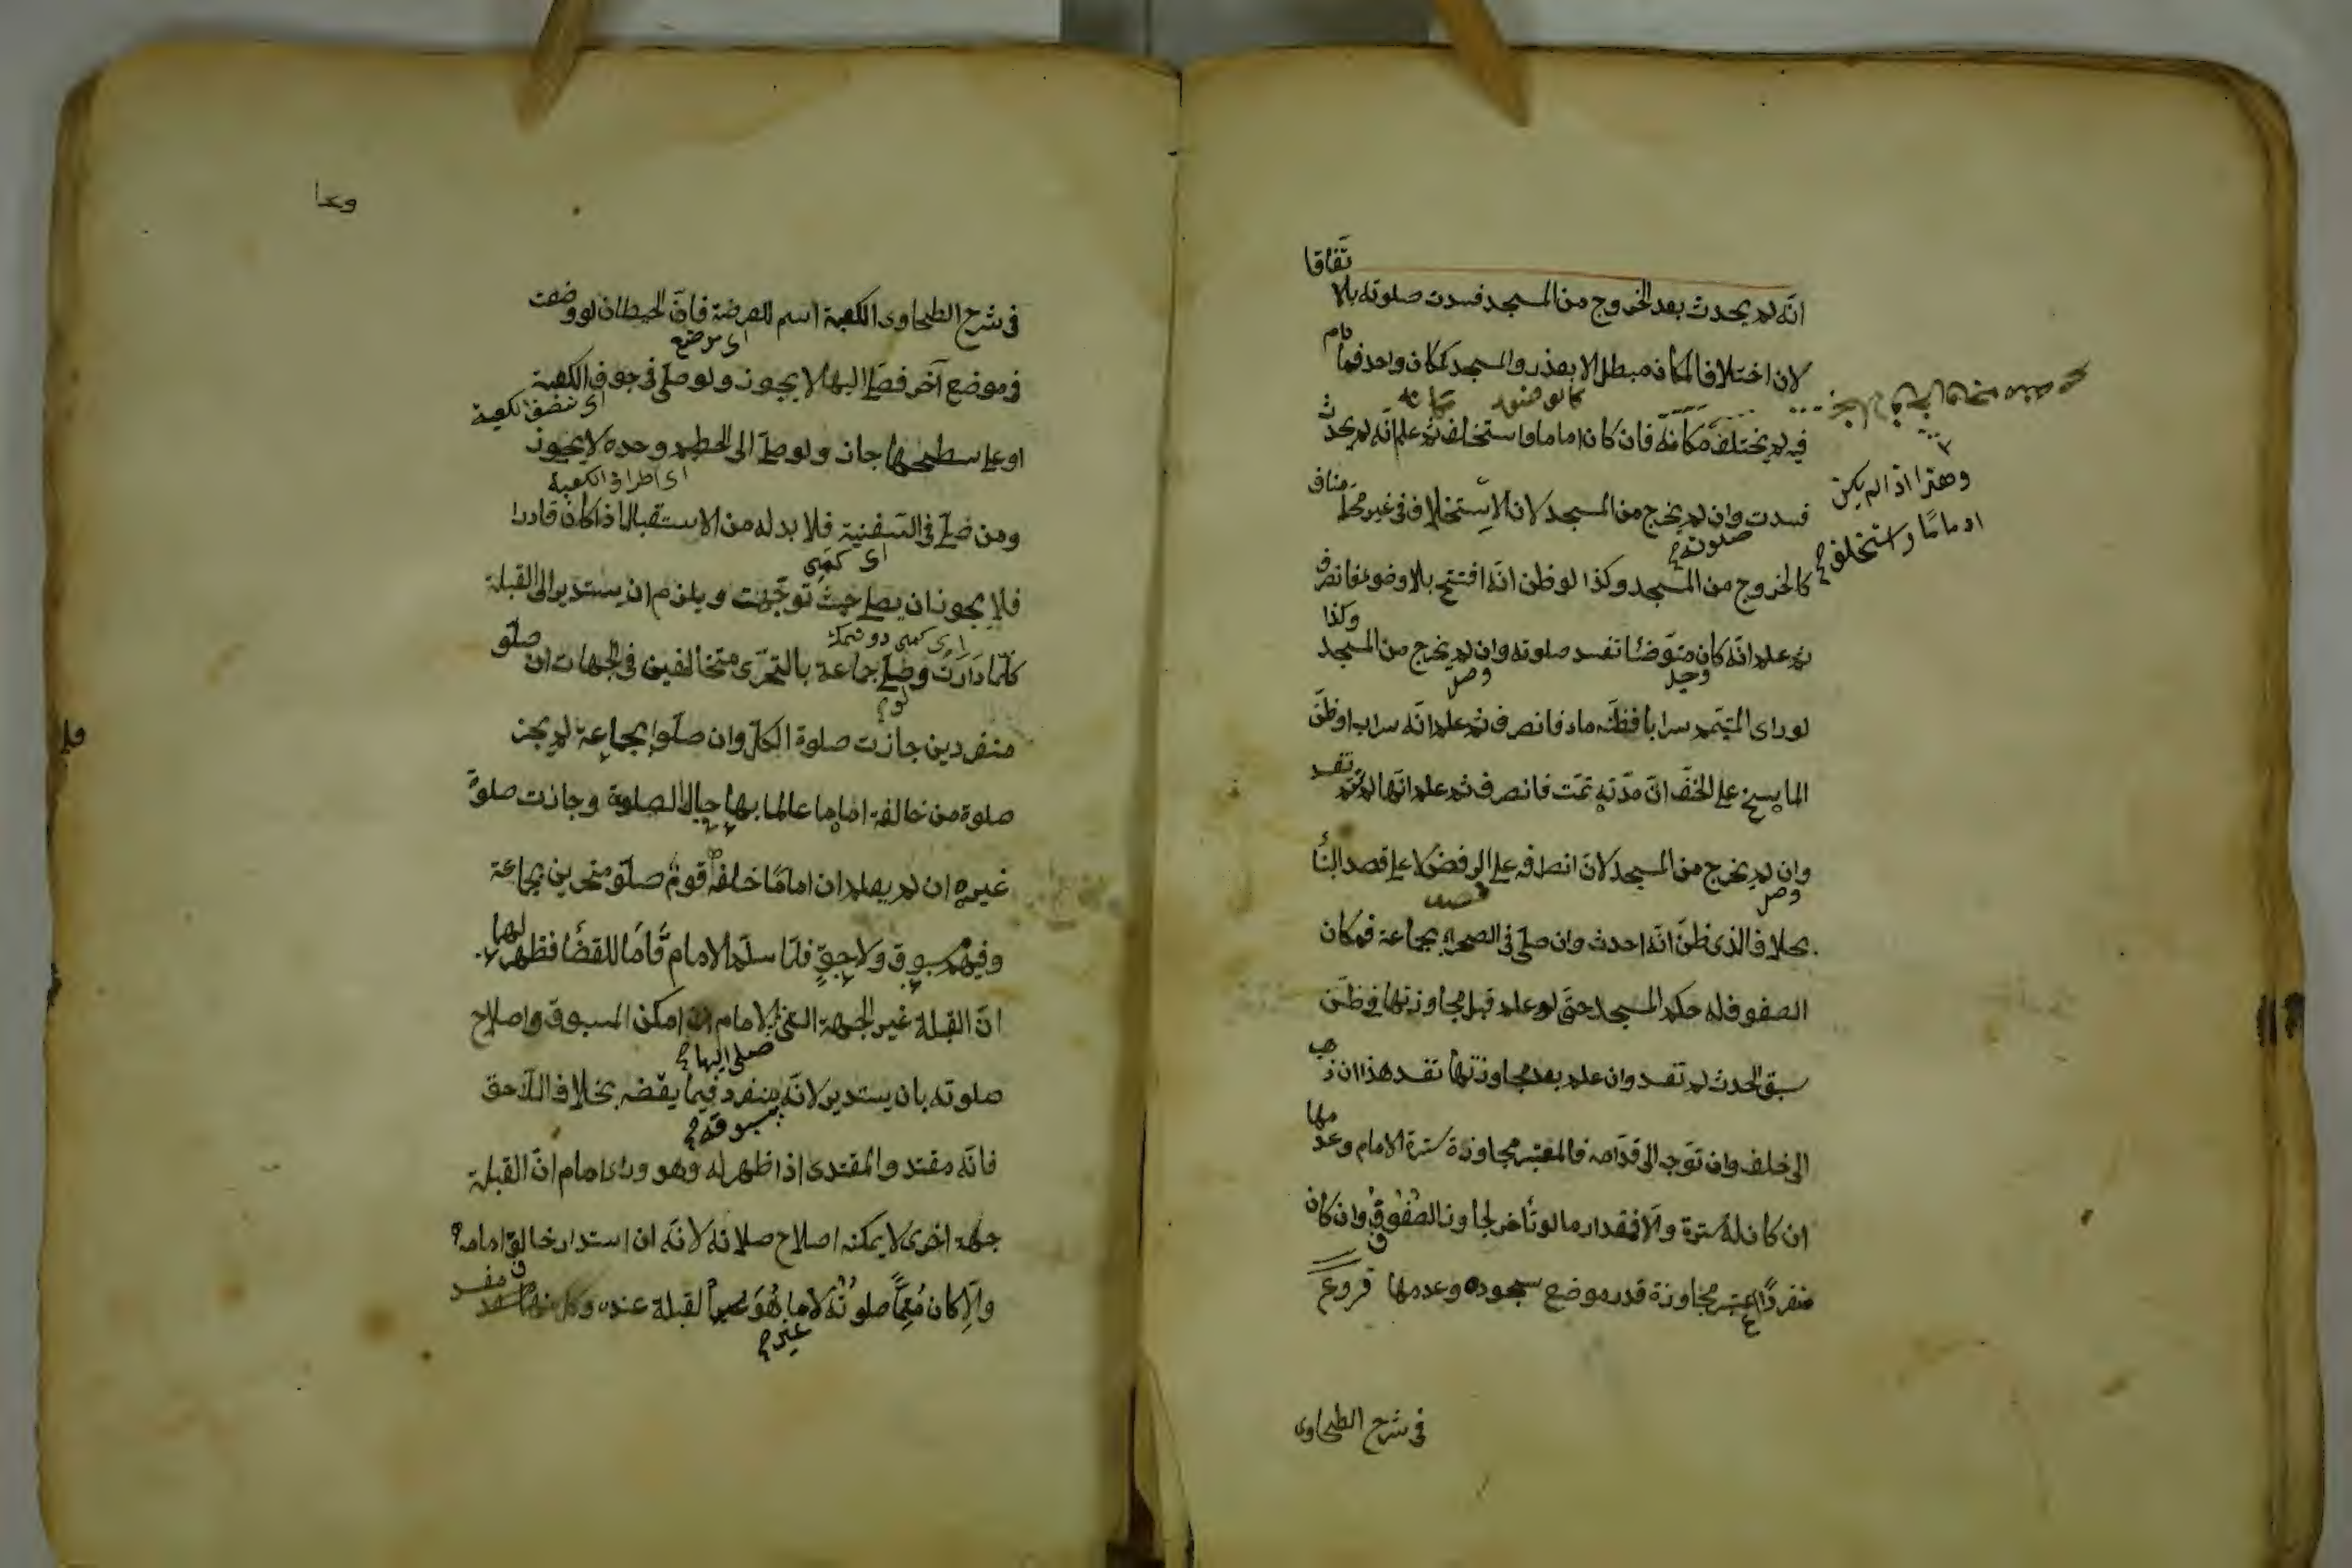 انه لم يحدث بعد الخروج من المسجد فسدت صلوته بالا تفاقا
لان اختلاف المكان مبطل الا بعذر والمسجد كمكان واحد فما دام
فيه لم يختلف مكانه فان كان اماما واستخلف ثم علم انه لم يحدث
فسدت وان لم يخرج من المسجد لان الاستخلاف في غير محله مناف
صلوته
كالخروج من المسجد وكذا لو ظن انه افتتح بلا وضوء فانصرف
ثم علم انه كان متوضئا تفسد صلوته وان لم يخرج من المسجد وكذا
لو راى المتيمم سرابا فظنه ماء فانصرف ثم علم انه سراب او ظن
الماسح على الخف ان مدته تمت فانصرف ثم علم انها لم تتم تفسد
وان لم يخرج من المسجد لان انصرافه على الرفض لا على قصد البناء
بخلاف الذى ظن انه احدث وان صلى في الصحراء بجماعة فمكان
الصفوف له حكم المسجد حتى لو علم قبل مجاوزتها في ظن
سبق الحدث لم تفسد وان علم بعد مجاوزتها تفسد هذا ان ذهب
الى خلف وان توجه الى قدامه فالمعتبر مجاوزة سترة الامام وعدمها
ان كان له سترة والا فمقدار ما لو تأخر لجاوز الصفوف وان كان
منفردا اعتبر مجاوزة قدر موضع سجوده وعدمها فروع
وهذا اذا لم يكن
اماما واستخلف
في شرح الطحاوى
في شرح الطحاوى الكعبة اسم للعرصة فان الحيطان لو وضعت
اى موضع
في موضع آخر فصلى اليها لا يجوز ولو صلى في جوف الكعبة
او على سطحها جاز ولو صلى الى الحطيم وحده لا يجوز
اى اطراف الكعبة
ومن صلى في السفينة فلا بد له من الاستقبال اذا كان قادرا
فلا يجوز ان يصلى حيث توجهت ويلزم ان يستدير الى القبلة
كلما دارت وصلى جماعة بالتحرى متخالفين في الجهات ان صلو
منفردين جازت صلوة الكل وان صلوا بجماعة لم يجز
صلوة من خالف اماما عالما بها حال الصلوة وجازت صلوة
غيره ان لم يعلم ان اماما خلفه قوم صلو متحرين بجماعة
وفيهم مسبوق ولاحق فلما سلم الامام قاما للقضا فظهر لهما
ان القبلة غير الجهة التى الامام امكن المسبوق اصلاح
صلى اليها
صلوته بان يستدير لانه منفرد فيما يقضه بخلاف اللاحق
فانه مقتد والمقتدى اذا ظهر له وهو وراء امام ان القبلة
جهة اخرى لا يمكنه اصلاح صلاته لانه ان استدار خالف امامه
والا كان متما صلوته لا ما هو القبلة عنده وكل مفسد